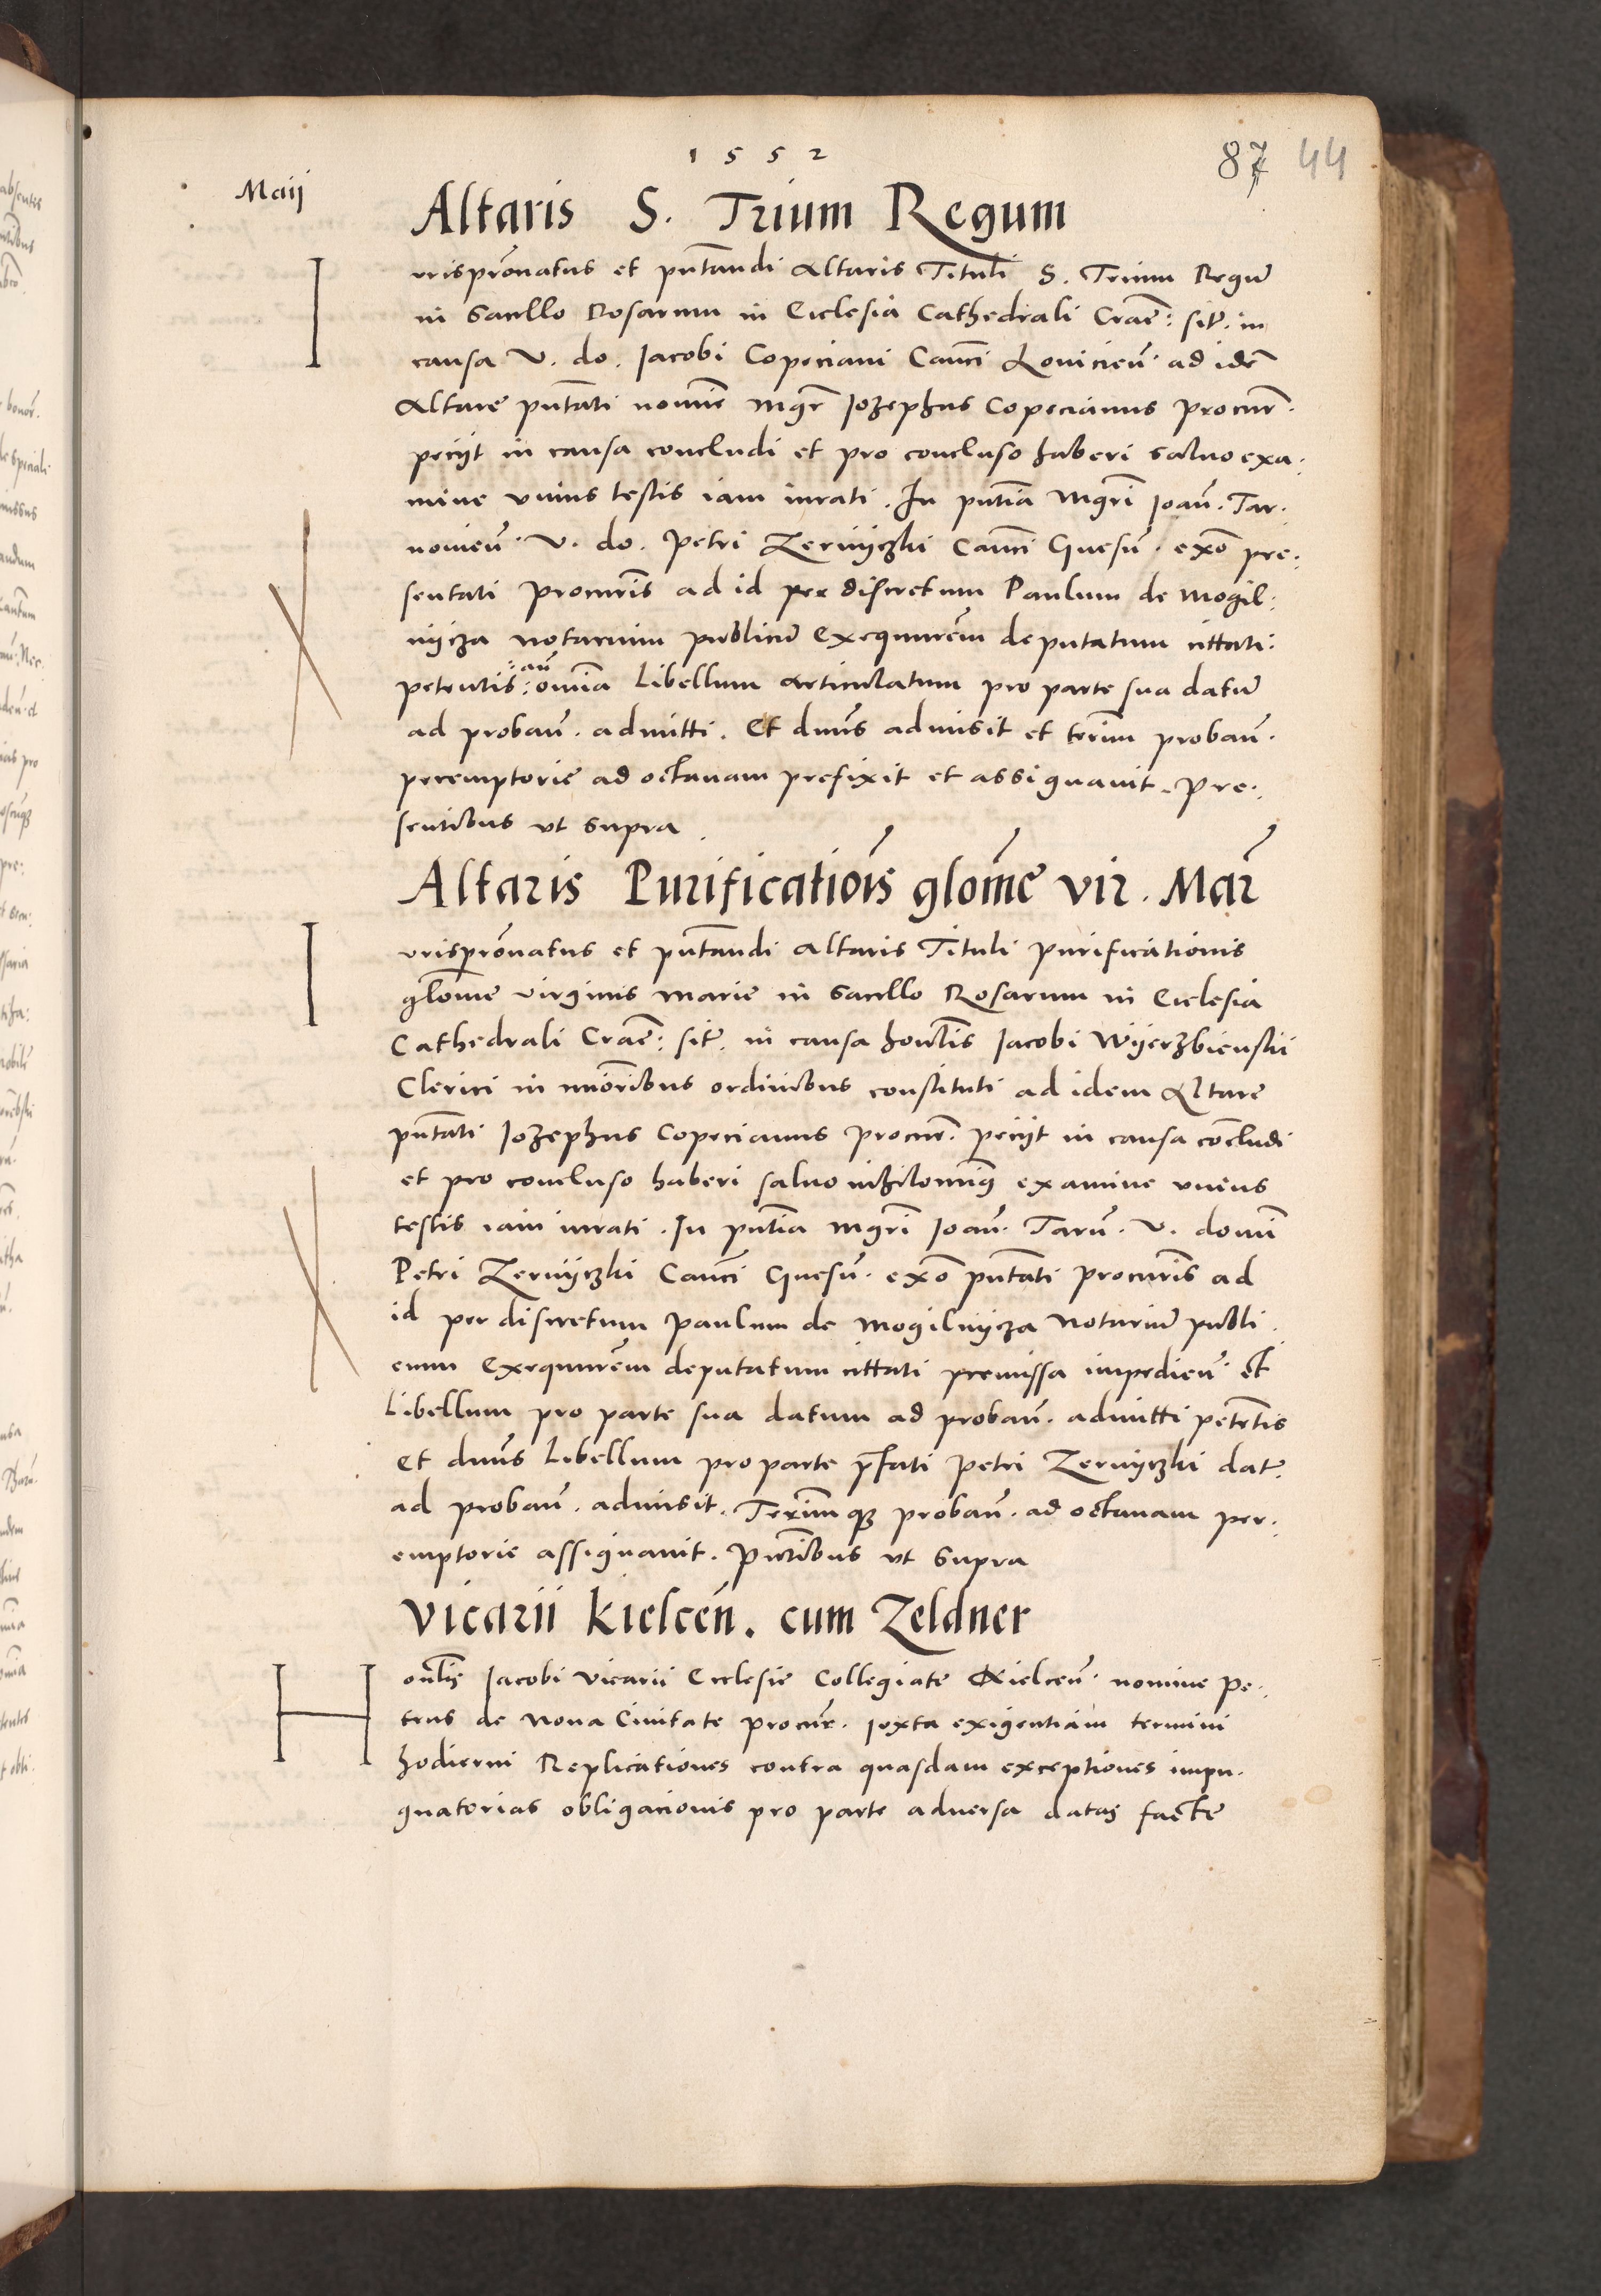 1552
87 44
Maij
Altaris S. Trium Regum
Iurisprōnatus et pn̄tandi Altaris Tituli S. Trium Regū
in Sacello Rosarum in Ecclesia Cathedrali Craē: sit̄. in
causa V. do. Iacobi Copeciani Canc̄i Lovicień. ad idē
Altare pn̄tati nomīe Mgr̄ Iozephus Copecianus procur̄.
peciit in causa concludi et pro concluso haberi salvo exa.
mine unius testis iam iurati. In pn̄tia Mgr̄i Ioań. Tar.
novień. V. do. Petri Zernyczki Canc̄i Gnesń. exō pre:
sentati procur̄is ad id per discretum Paulum de Mogil:
nycza notarium publicū Exequutr̄em deputatum cittati:
petentis: :an̄ om̄ia Libellum articulatum pro parte sua datū
ad probań. admitti. Et dn̄us admisit et ter̄im probań.
peremptorie ad octavam prefixit et assignavit. Pre.
sentibus ut supra.
Altaris Purificatiōis glōme vir. Mar̄
Iurisprōnatus et pn̄tandi Altaris Tituli Purificationis
glōme virginis Marie in Sacello Rosarum in Ecclesia
Cathedrali Craē: sit̄. in causa honl̄is Iacobi Wyerzbienskii
Clerici in miōribus ordinibus constituti ad idem Altare
pn̄tati Iozephus Copecianus procur̄. peciit in causa cōcludi
et pro concluso haberi salvo nihilominq̄ examine unius
testis iam iurati. In pn̄tia Mgr̄i Ioań. Tarń. V. domī
Petri Zernyczki Canc̄i Gnesń. exō pn̄tati procur̄is ad
id per discretum Paulum de Mogilnycza Notariū publi.
cum Exequutr̄em deputatum cittati premissa impedień. et
Libellum pro parte sua datum ad probań. admitti petēntis
et dn̄us Libellum pro parte p̄fati Petri Zernyczki dat̄.
ad probań. admisit. Ter̄imq3 probań. ad octavam per.
emptorie assignavit. Pn̄tibus ut supra
Vicarii Kielceń. cum Zeldner
Honl̄is Iacobi Vicarii Ecclesie Collegiate Kielceń. nomine Pe.
trus de Nova Civitate procur̄. Iuxta exigentiam termini
hodierni Replicationes contra quasdam exceptiones impu.
gnatorias obligacionis pro parte adversa datas facte